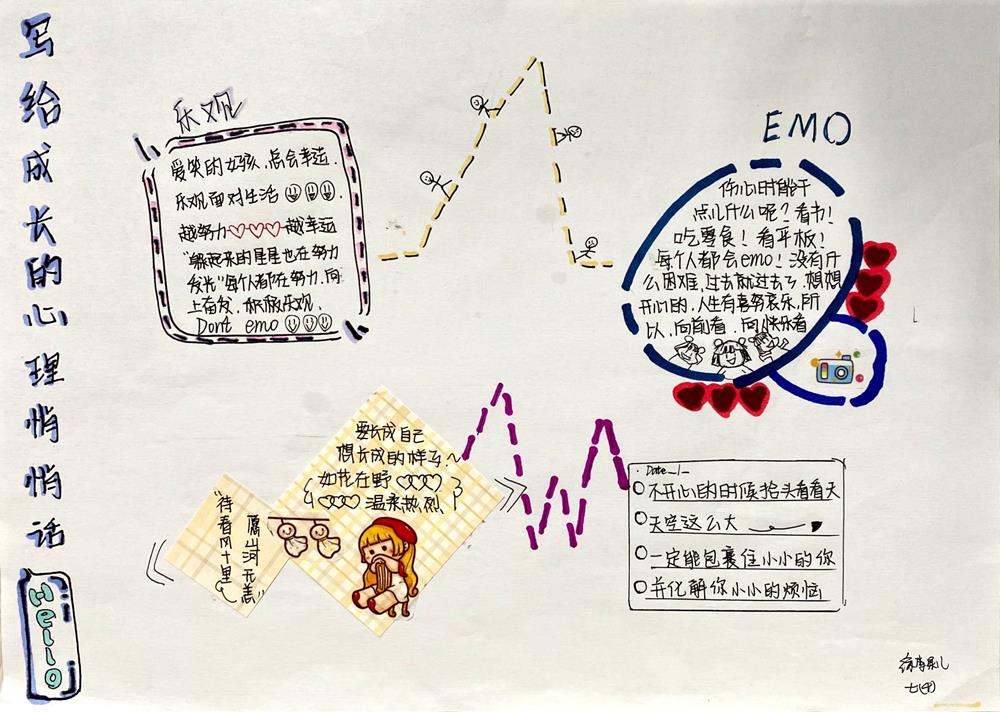 写给成长的心理悄悄话
Hello
乐观
爱笑的女孩,总会幸运.
乐观面对生活
越努力 越幸运
"躲起来的星星也在努力
发光"每个人都在努力.向
上奋发.积极乐观.
Dont emo
EMO
你心时能干
点儿什么呢?看书!
吃零食!看平板!
每个人都会emo!没有什
么困难,过去就过去了.想想
开心的,人生有喜努哀乐,所
以,向前看.向快乐看
要长成自己
想长成的样子.~
如花在野
温柔热烈
"待春风十里
愿山河无恙"
Date_/_
不开心的时候抬头看看天
天空这么大
一定能包裹住小小的你
并化解你小小的烦恼
七(4)